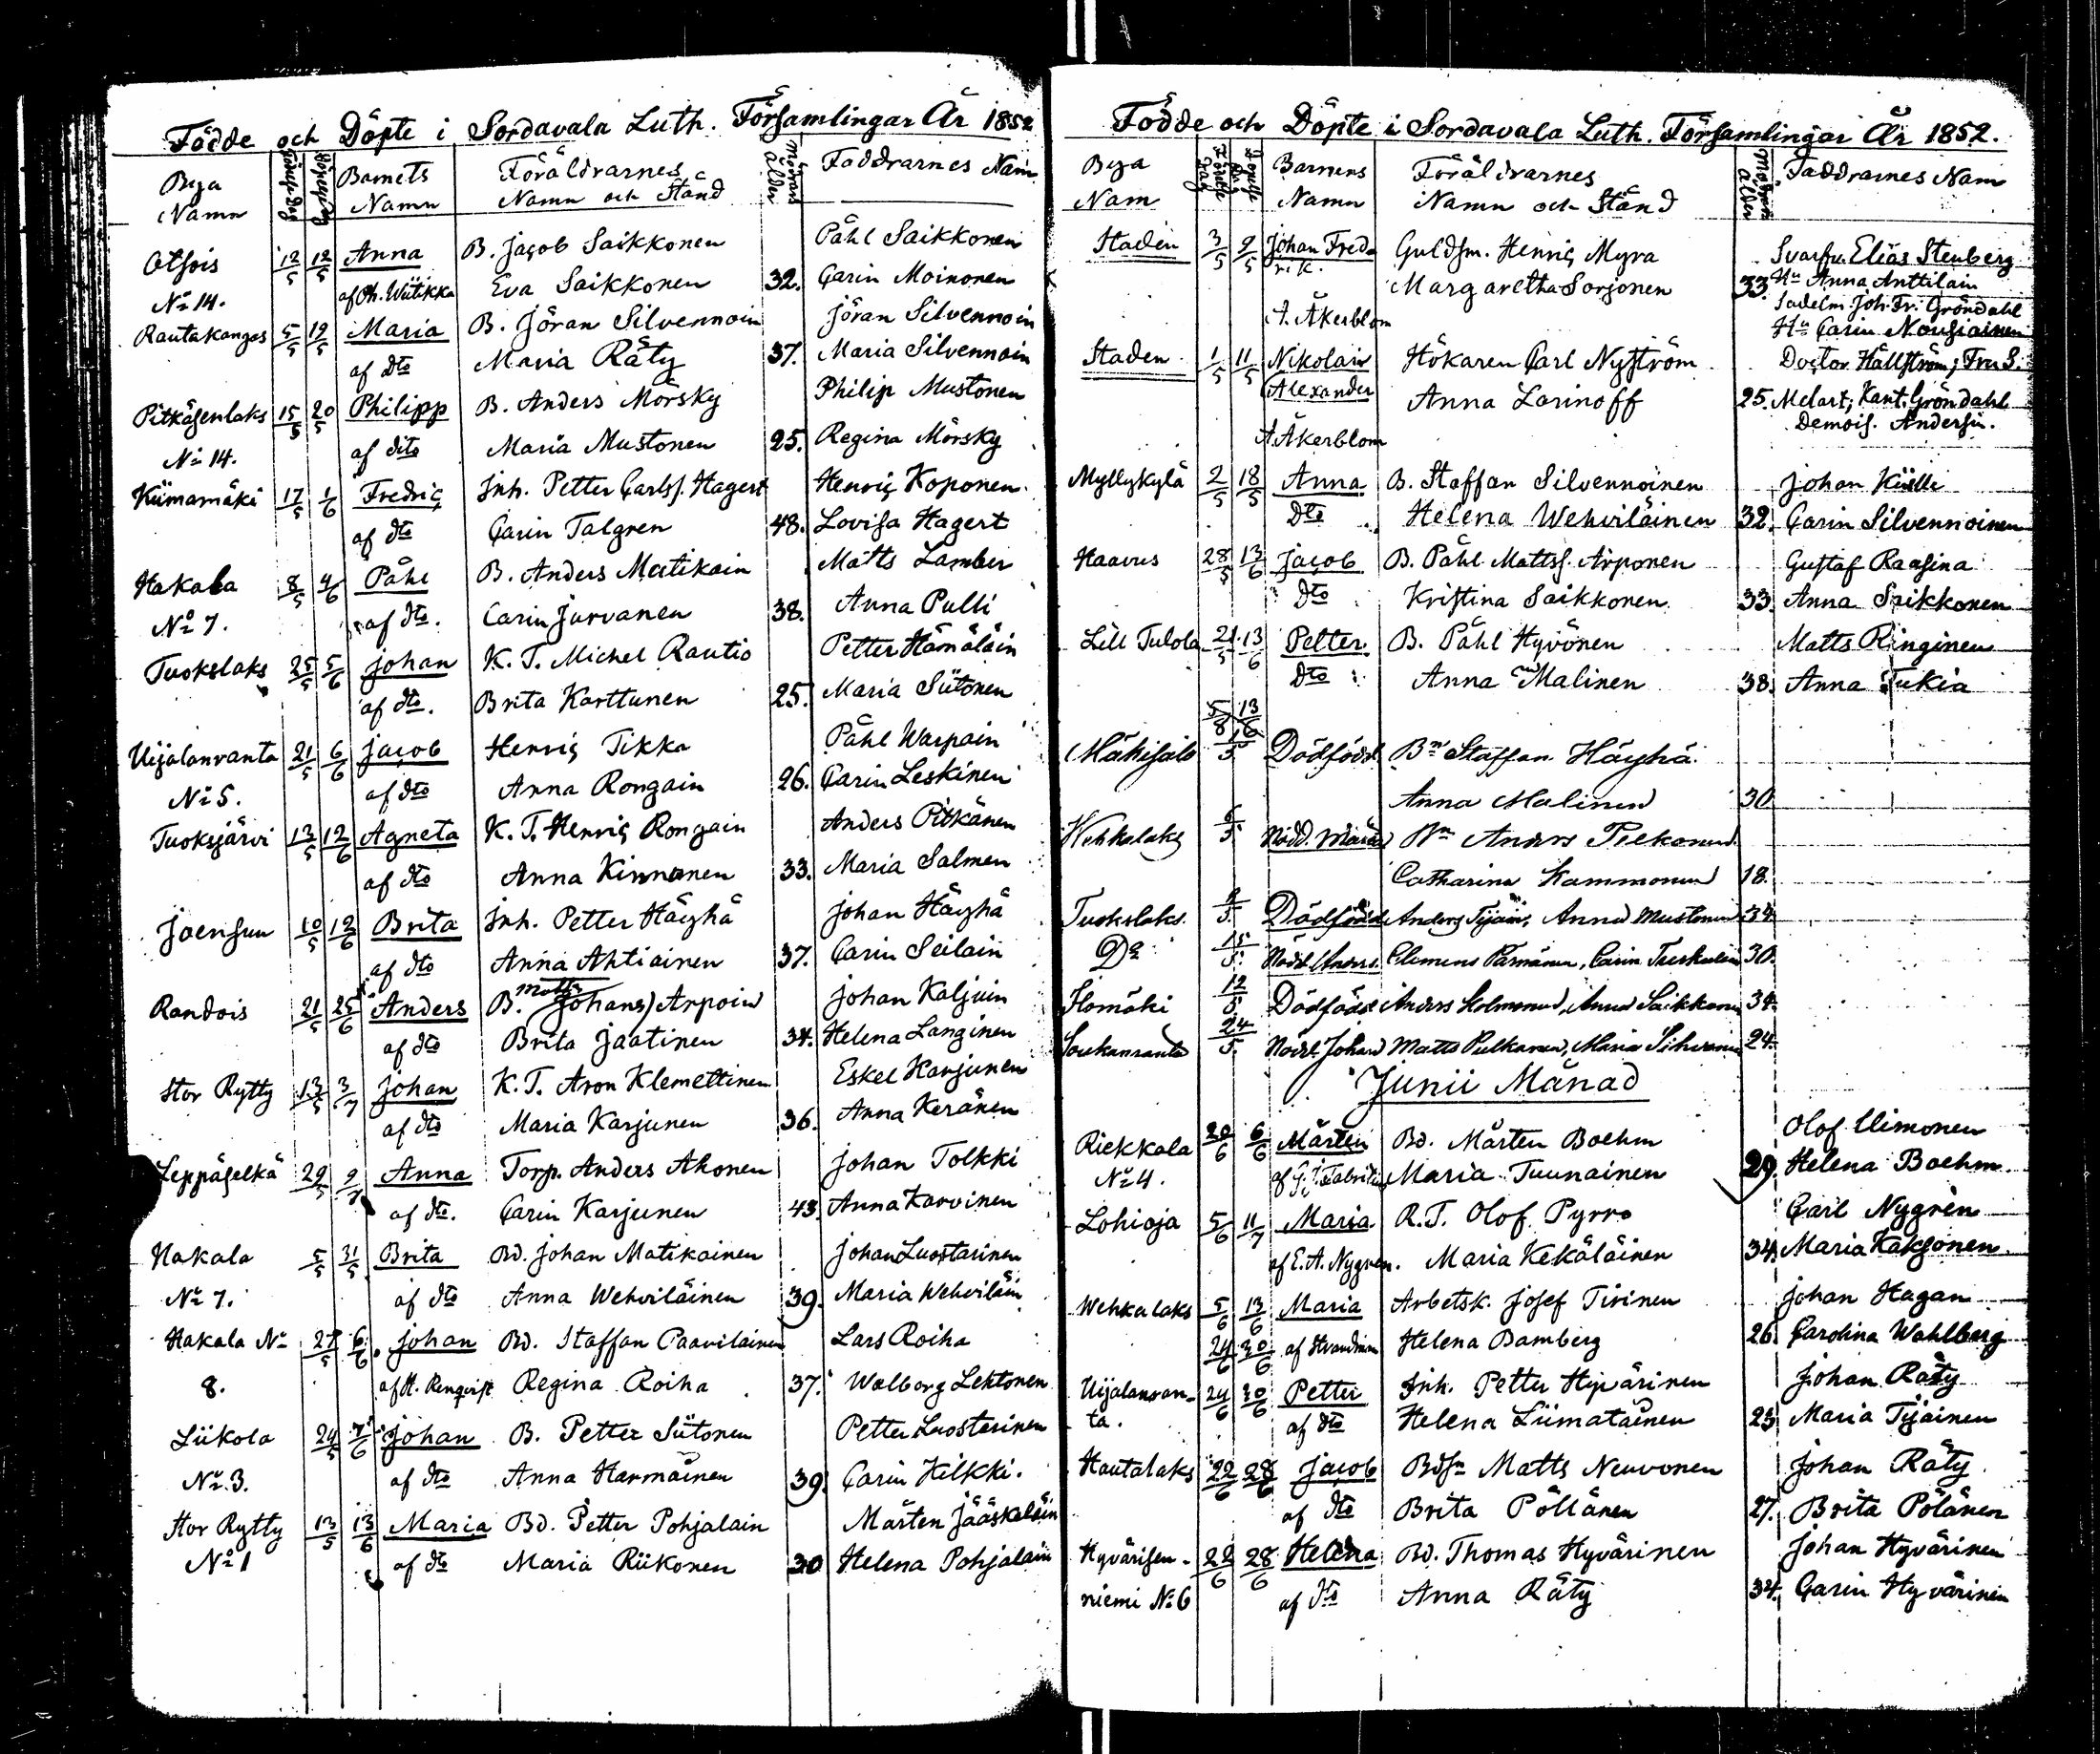 Födde och Döpte i Sordavala Luth. Församlingar År 1852
Bya Namn Barnets Namn Föräldrarnes Namn och Stånd Moderns ålder Faddrarnes Nam
Otsois 12/5 12/5 Anna B. Jacob Saikkonen Påhl Saikkonen
No 14. af Oh. Wiitikka Eva Saikkonen 32. Carin Moinonen
Rautakangas 5/5 19/5 Maria B. Jöran Silvennoin Jöran Silvennoin
af dto Maria Räty 37. Maria Silvennoin
Pitkäsenlaks 15/5 20/5 Philipp B. Anders Mörsky Philip Mustonen
No 14. af dito Maria Mustonen 25. Regina Mörsky
Kiimamäki 17/5 1/6 Fredric Inh. Petter Carlss. Hagert Henric Koponen
af dto Carin Talgren 48. Lovisa Hagert
Hakala 8/5 4/6 Påhl B. Anders Matikain Matts Lamber
No 7. af dto. Carin Jurvanen 38. Anna Pulli
Tuokslaks 25/5 5/6 Johan K. T. Michel Rautio Petter Hämäläin
af dto. Brita Karttunen 25. Maria Siitonen
Uijalanranta 21/5 6/6 Jacob Henric Tikka Påhl Warpain
No 5. af dto Anna Rongain 26. Carin Leskinen
Tuoksjärvi 13/5 12/6 Agneta K. T. Henric Rongain Anders Pitkänen
af dto Anna Kinnonen 33. Maria Salmen
Joensuu 10/5 12/6 Brita Inh. Petter Häyhä Johan Häyhä
af dto Anna Ahtiainen 37. Carin Seilain
Randois 21/5 25/6 Anders B. Matts Johans) Arpoin Johan Kaljuin
af dto Brita Jaatinen 34. Helena Langinen
Stor Rytty 13/5 3/7 Johan K. T. Aron Klemettinen Eskel Karjunen
af dto Maria Karjunen 36. Anna Keränen
Leppäselkä 29/5 9/7 Anna Torp. Anders Ahonen Johan Tolkki
af dto. Carin Karjunen 43. Anna Karvinen
Hakala 5/5 31/5 Brita Bd. Johan Matikainen Johan Luostarinen
No 7. af dto Anna Wehviläinen 39. Maria Wehviläin
Hakala No 27/5 6/6 Johan Bd. Staffan Paavilainen Lars Roiha
8. af H. Renqvist Regina Roiha 37. Walborg Lehtonen
Liikola 24/5 7/6 Johan B. Petter Siitonen Petter Luostarinen
No. 3. af dto Anna Harmainen 39. Carin Hilkki.
Stor Rytty 13/5 13/6 Maria Bd. Petter Pohjalain Mårten Jääskeläin
No 1 af dto Maria Riikonen 30 Helena Pohjalain
Födde och Döpte i Sordavala Luth. Församlingar År 1852.
Bya Nam Födelse Dag Barnens Namn Föräldrarnes Namn och Stånd ålder Faddrarnes Nam
Staden 3/5 9/5 Johan Fred- Guldsm. Henric Myra Svarfv. Elias Stenberg
rik. Margaretha Sorjonen 33. Hu Anna Anttilain
Sadelm. Joh. Fr. Gröndahl
A. Åkerblom Hu Carin Nousiainen
Staden 1/5 11/5 Nikolai Hökaren Carl Nyström Doctor Hällström, Fru S.
Alexander Anna Larinoff 25. Melart, Kant. Gröndahl
Demois. Andersin.
A. Åkerblom
Myllykylä 2/5 18/5 Anna B. Staffan Silvennoinen Johan Kiilli
Dto Helena Wehviläinen 32. Carin Silvennoinen
Haavus 28/5 13/6 Jacob B. Påhl Mattss. Arponen Gustaf Raasina
Dto Kristina Saikkonen 33. Anna Saikkonen
Lill Tulola 21/5 13/6 Petter B. Påhl Hyvönen Matts Ringinen
Dto Anna Malinen 38. Anna Tukia
5/8 13/8
Mäkisalo 1/5 Dödfödd Bn Staffan Häyhä
Anna Malinen 30
Wehkalaks 6/5 Nödd. Maria Bn Anders Pelkonen
Catharina Kammonen 18.
Tuokslaks 9/5 Dödfödd Anders Tyjäin, Anna Mustonen 34
Do 15/5 Nödd. Anders Clemens Parnänen, Carin 30.
Ilomäki 12/5 Dödfödd Anders Holmonen, Anna Saikkonen 34.
Soukanranta 24/5 Nödd. Johan Matts Pulkanen, Maria 24.
Junii Månad
Riekkala 20/6 6/6 Mårten Bd. Mårten Boehm Olof Uimonen
No 4. af G. J. Fabritius Maria Tuunainen 29. Helena Boehm
Lohioja 5/6 11/7 Maria R. T. Olof Pyrrö Carl Nygrèn
af E. A. Nygren. Maria Kekäläinen 34. Maria Kaksonen
Wehkalaks 5/6 13/6 Maria Arbetsk. Josef Tirinen Johan Hagan
24/6 30/6 af Strandman Helena Bamberg 26. Carolina Wahlberg
Uijalanran- 24/6 30/6 Petter Inh. Petter Hyvärinen Johan Räty
ta. af dto Helena Liimatainen 25 Maria Tyjäinen
Hautalaks 22/6 28/6 Jacob Bdsn Matts Neuvonen Johan Räty
af dto Brita Pöllänen 27. Brita Pölänen
Hyvärisen- 22/6 28/6 Helena Bd. Thomas Hyvärinen Johan Hyvärinen
niemi No 6 af dto Anna Räty 34. Carin Hyvärinin